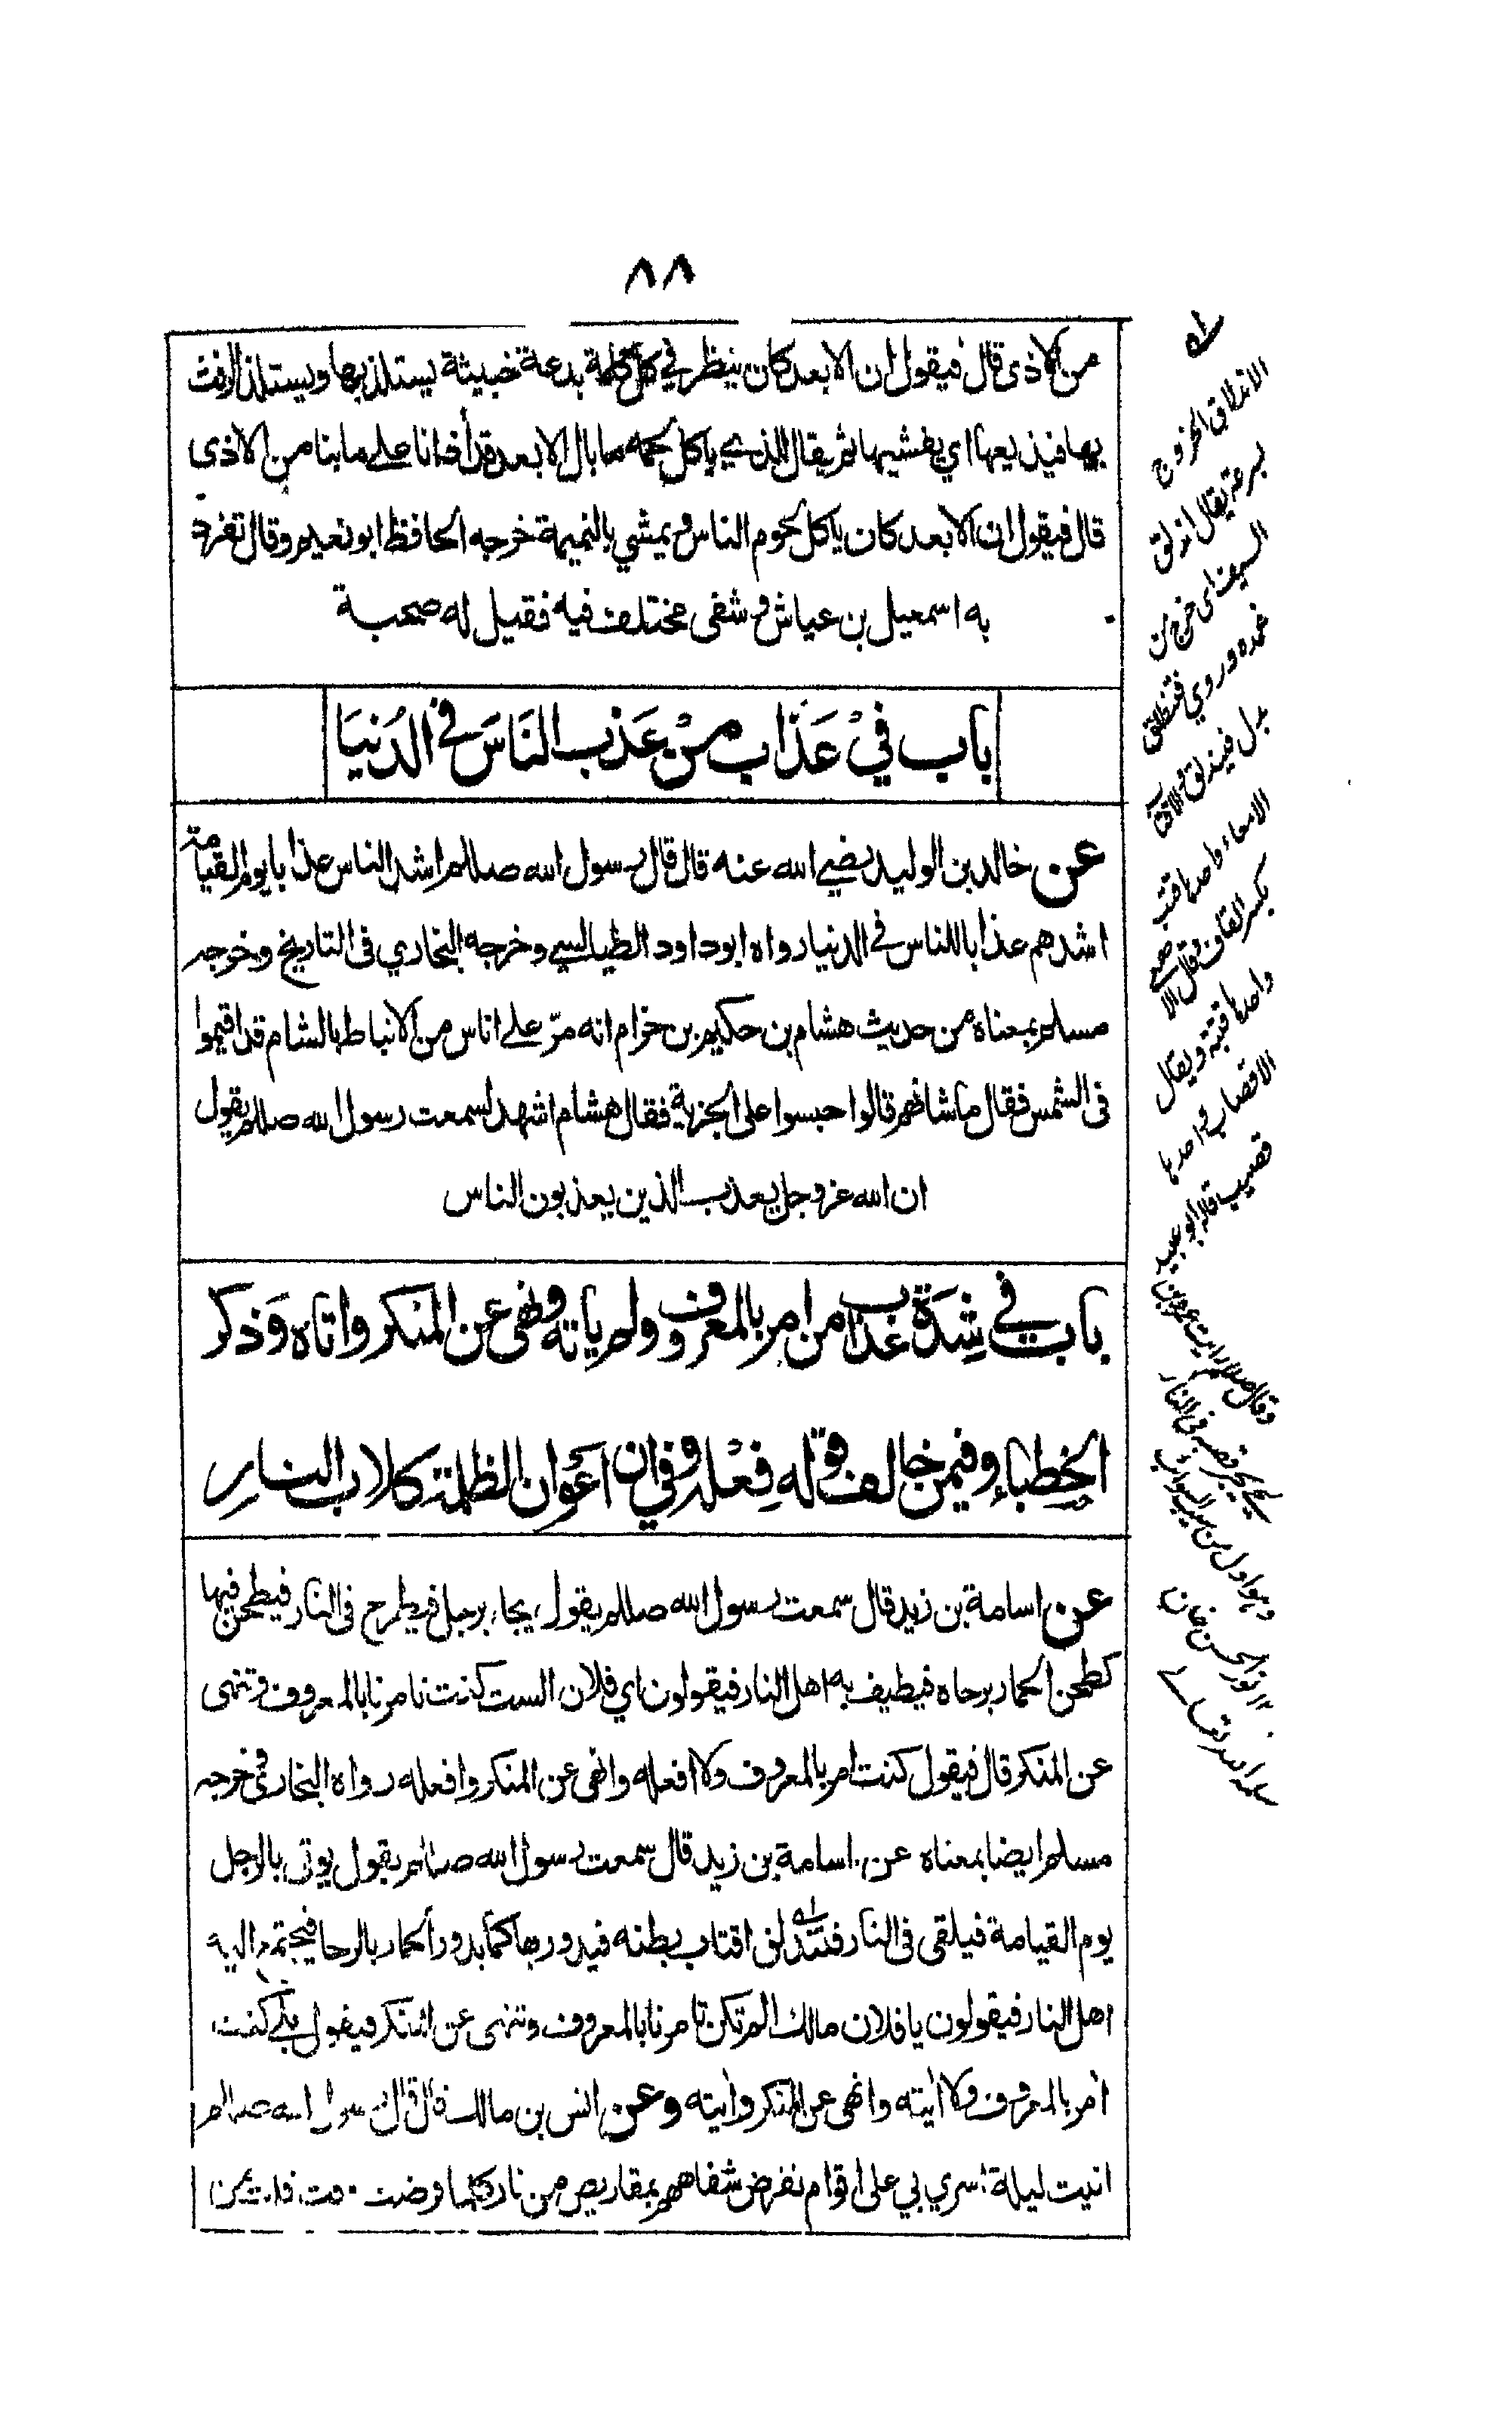 ٨٨
من الاذى قال فيقول ان الابعد كان ينظر في كل كلمة بدعة خبيثة يستلذ بها ويستلذ الرفث
بها فيذيعها اي يفشيها ثم يقال للذي ياكل لحمه ما بال الابعد قد أذانا على ما بنا من الاذى
قال فيقول ان الابعد كان ياكل لحوم الناس و يمشي بالنميمة خرجه الحافظ ابو نعيم وقال تفرد
به اسمعيل بن عياش و شفى مختلف فيه فقيل له صحبة
باب فيْ عَذَاب منْ عَذب النَاسَ في الدُنيَا
عن خالد بن الوليد رضي الله عنه قال قال رسول الله صللم اشد الناس عذابا يوم القيامة
اشدهم عذابا للناس في الدنيا رواه ابوداود الطيالسي وخرجه البخاري فى التاريخ وخرجه
مسلم بمعناه من حديث هشام بن حكيم بن حزام انه مرّ على اناس من الانباط بالشام قد اقيموا
فى الشمس فقال ما شانهم قالوا حبسوا على الجزية فقال هشام اشهد لسمعت رسول الله صللم يقول
ان الله عزوجل يعذب الذين يعذبون الناس
باب في شِدَة عَذاب من امر بالمعروف ولم ياته ونهى عن المنكر واتاه وَذكر
الخطباءِ وفيمن خالف قوّله فِعْله وفي ان أعوان الظلمة كلاب النارِ
عن اسامة بن زيد قال سمعت رسول الله صللم يقول يجاء برجل فيطرح فى النار فيطحن فيها
كطحن الحمار برحاه فيطيف به اهل النار فيقولون اي فلان الست كنت تامرنا بالمعروف وتنهى
عن المنكر قال فيقول كنت امر بالمعروف ولا افعله وانهى عن المنكر وافعله رواه البخاري وخرجه
مسلم ايضا بمعناه عن اسامة بن زيد قال سمعت رسول الله صللم يقول يوتى بالرجل
يوم القيامة فيلقى فى النار فتندلق اقتاب بطنه فيدور بها كما يدور الحمار بالرحا فيجتمع اليه
اهل النار فيقولون يا فلان مالك الم تكن تامرنا بالمعروف وتنهى عن المنكر فيقول بلى كنت
أمر بالمعروف ولا أتيته وانهى عن المنكر وأتيته وعن انس بن مالك قال قال رسول الله صللم
اتيت ليلة اسري بي على اقوام تقرض شفاههم بمقاريض من نار كلما قرضت
الاندلاق الخروج
بسرعة يقال اندلق
السيف اى خرج من
غمده وروي فتنطلق
بدل فتندلق والاقتاب
الامعاء واحدها قتب
بكسر القاف وقال الاصمعي
واحدها قتبة ويقال
الاقصاب واحدها
قصب قاله ابو عبيد
وقال صللم رايت عمرو بن
لحي يجر قصبه في النار
وهو اول من سيب السوائب
١٢ نور الحسن خان
سلمه الله تعالى